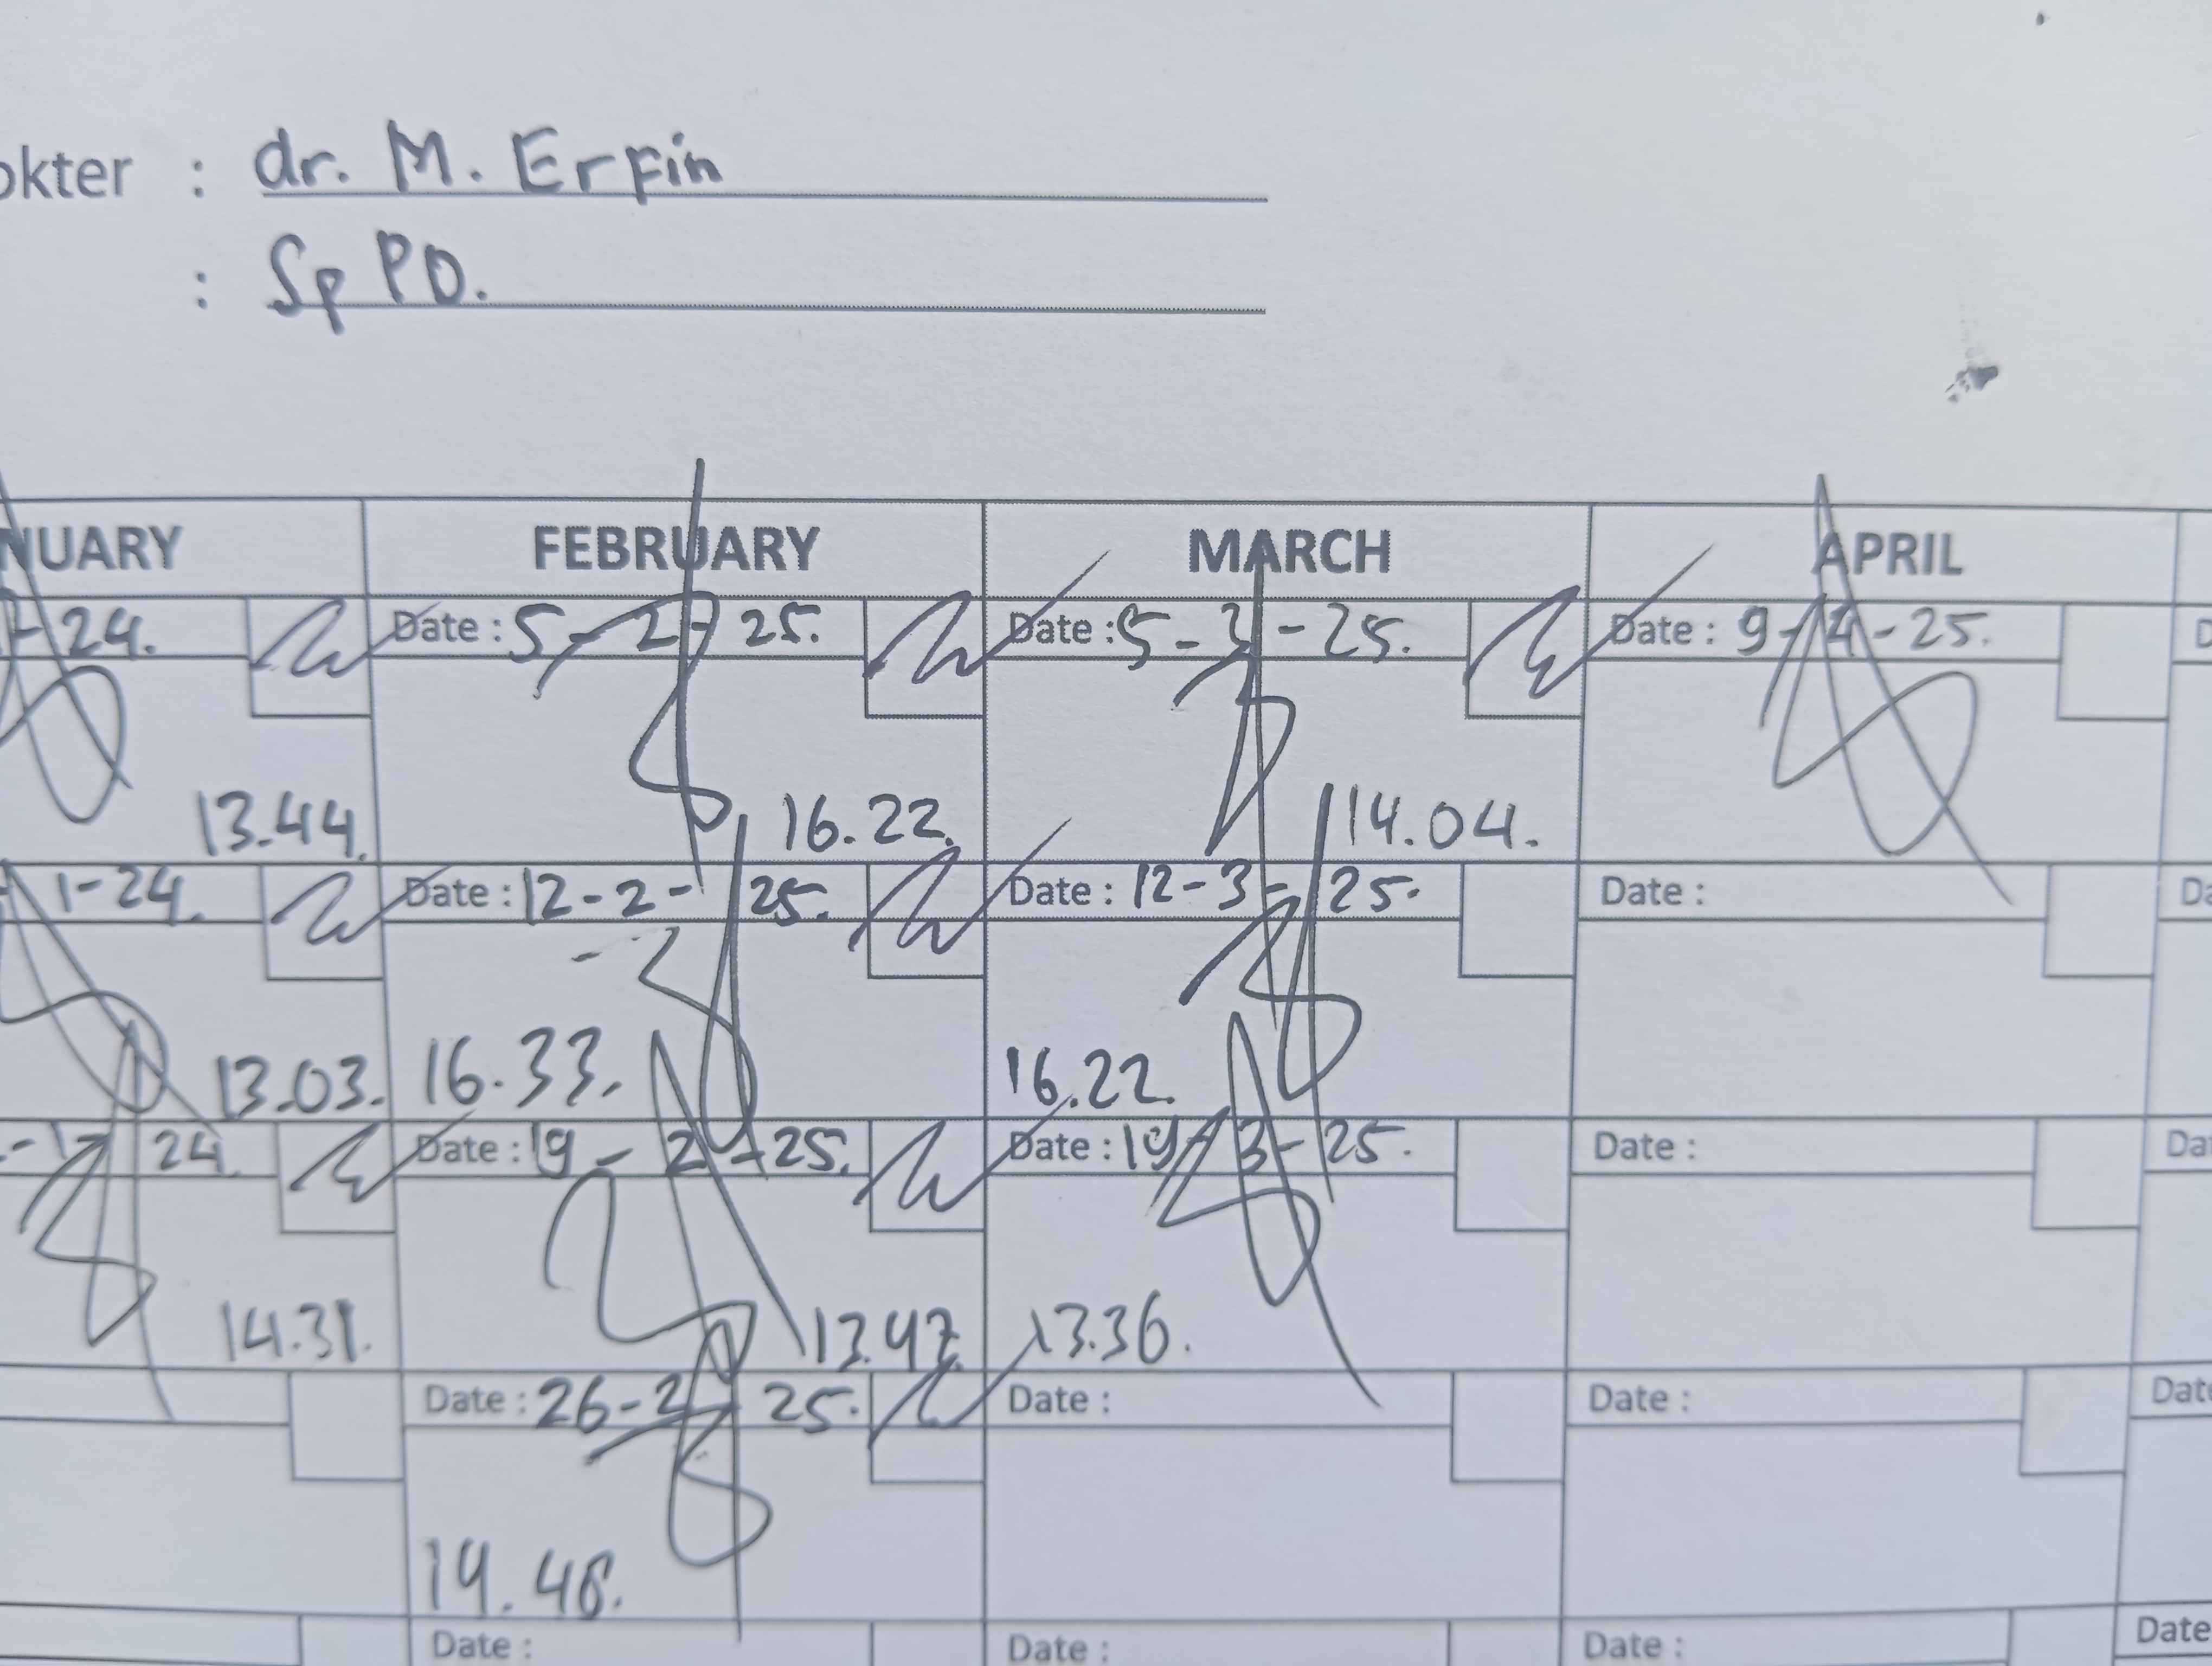 okter : dr. M. Erfin
: Sp PD.
NUARY FEBRUARY MARCH APRIL
24. Date : 5-2-25. Date : 5-3-25. Date : 9-4-25.
13.44. 16.22. 14.04.
1-24. Date : 12-2-25. Date : 12-3-25. Date :
13.03. 16.33. 16.22.
-1- 24. Date : 19-2-25. Date : 19-3-25. Date :
14.31. 13.47. 13.36.
Date : 26-2 25. Date : Date : Date
14.48.
Date : Date : Date : Date